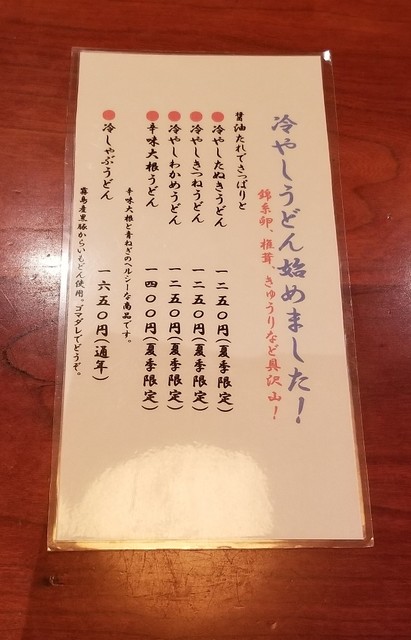 冷やしうどん始めました！
錦糸卵、椎茸、きゅうりなど具沢山！
醤油たれでさっぱりと
●冷やしたぬきうどん 一二五〇円(夏季限定)
●冷やしきつねうどん 一二五〇円(夏季限定)
●冷やしわかめうどん 一二五〇円(夏季限定)
●辛味大根うどん 一四〇〇円(夏季限定)
辛味大根と青ねぎのヘルシーな商品です。
●冷しゃぶうどん 一六五〇円(通年)
霧島産黒豚からいもどん使用。ゴマダレでどうぞ。